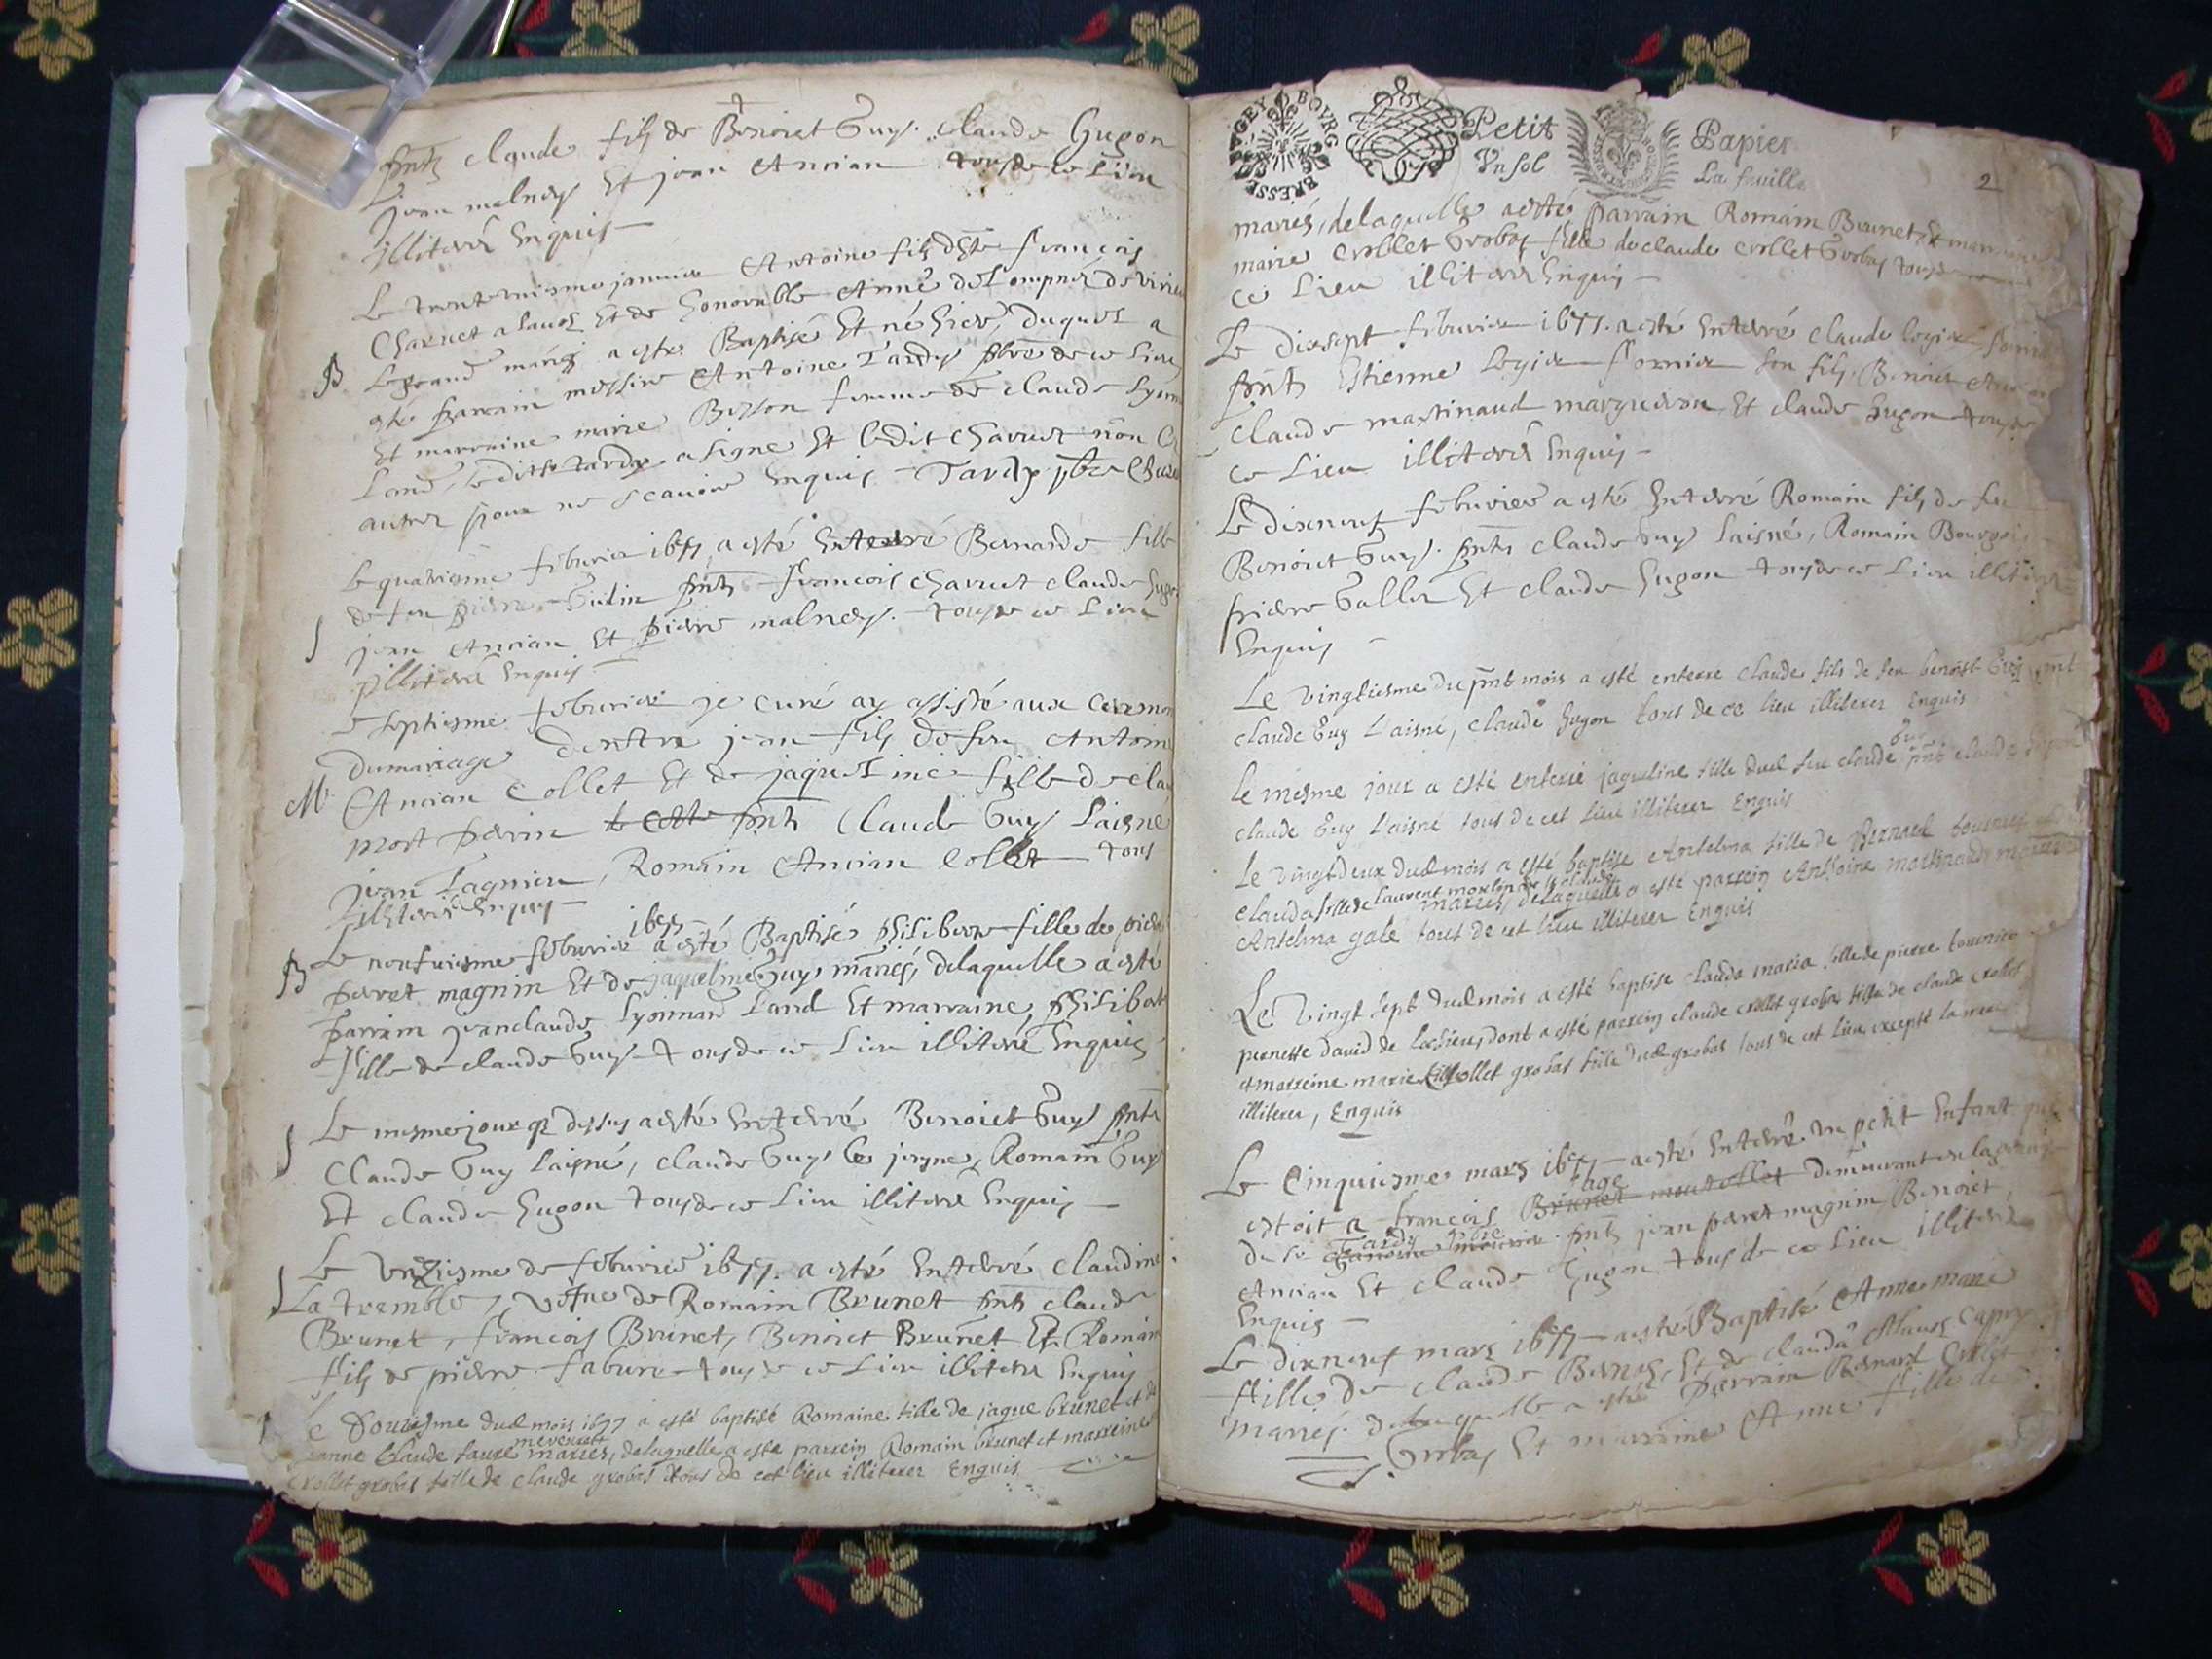 pnts claude fils de Benoict Guy. claude Hugon
jean malney Et jean Ancian tous de ce Lieu
illiterés Enquis
Le trentuniesme janvier Antoine fils d'hste François
Charvet alauos Et de honorable Anne de Lompnes de virieu
B Legrand mariés a esté Baptisé Et né hier, duquel a
esté parrain messire Antoine Tardy pbre de ce Lieu
Et marraine marie Bisson femme de claude Lyonn
Land, ledit sr Tardy a signe Et ledit charvet non Les
autres pour ne scavoir Enquis Tardy pbre Charvet
Le quatriesme febvrier 1677 a esté Enterré Bernarde fille
de feu pierre Gudin pnts François charvet claude Hugon
S jean Ancian Et pierre malney. tous de ce Lieu
illiterés Enquis
Le septiesme febvrier je curé ay assisté aux ceremon
du mariage d'entre jean fils de feu Antoine
M Ancian Collet Et de jaqueline fille de clau
mort perrin pnts Claude Guy Laisne
jean Tagnieu, Romain Ancian Collet tous
illiterés Enquis
Le neufviesme febvrier 1677 a esté Baptisé philiberte fille de pierre
B perret magnin Et de jaqueline Guy mariés, delaquelle a esté
parrain jean claude Lyonnard Land Et marraine, philiberte
fille de claude Guy tous de ce Lieu illiteré Enquis
S Le mesme jour que dessus a esté Enterré Benoict Guy pnts
Claude Guy Laisné, claude Guy le jeyne, Romain Guy
Et claude Hugon tous de ce Lieu illiteré Enquis
Le unziesme de febvrier 1677. a esté Enterré Claudine
S La tremble, vefve de Romain Brunet pnts claude
Brunet, francois Brunet, Benoict Brunet Et Romain
fils de pierre fabvre tous de ce Lieu illiterés Enquis
Le Douziesme dud mois 1677 a esté baptisé Romaine fille de jaque brunet et de
janne Claude favre meveuret mariés, de laquelle a esté parrein Romain brunet et marreine
crollet grobas fille de claude grobas tous de cet lieu illiterer Enquis
BVGEY BOVRG BRESSE
Petit Papier
Vn sol La feuille
2
mariés, delaquelle a esté parrain Romain Brunet Et marraine
marie Crollet Grobas fille de claude Crollet Grobas tous de
ce Lieu illiterés Enquis
Le dixsept febvrier 1677. a esté Enterré Claude Legier fornier
pnts Estienne Legier fornier son fils, Benoict Ancian
Claude martinaud margueron Et claude Hugon tous de
ce Lieu illiterés Enquis
Le dixneufz febvrier a esté Enterré Romain fils de feu
Benoict Guy. pnts claude Guy Laisné, Romain Bourgois
pierre Gallet Et claude Hugon tous de ce Lieu illiterés
Enquis
Le vingtiesme du pnt mois a esté enterre claude fils de feu benoist Guy pnt
claude Guy L'aisné, claude hugon tous de ce lieu illiterer Enquis
le mesme jour a esté enterré jaqueline fille dud feu claude Guy pnt claude hugon
claude Guy L'aisné tous de cet lieu illiterer Enquis
Le vingt deux dud mois a esté baptise Antelma fille de Bernard tournier et de
clauda fille de Laurent mariés, delaquelle a esté parrein Anthoine martinaud marreine
Antelma gale tous de cet lieu illiterer Enquis
Le vingt sept dud mois a esté baptise clauda maria fille de pierre tournier
pernette david de Lochieu, dont a esté parrein claude crollet grobas fille de claude crollet
et marreine marie crollet grobas fille dud grobas tous de cet lieu excepté la mere
illiterer, Enquis
Le Cinquiesme mars 1677 a esté Enterré un petit Enfant qui
estoit a françois Brunet moutollet age demeurant en la grange
de sr Tardy pbre. pnts jean perret magnin, Benoict
Ancian Et claude Hugon tous de ce Lieu illiterés
Enquis
Le dixneuf mars 1677 a esté Baptisé Anne marie
fille de claude Bernos, Et de clauda Alauos Capry
mariés. delaquelle a esté Parrain Bernard Crollet
Grobas Et marraine Anne fille de